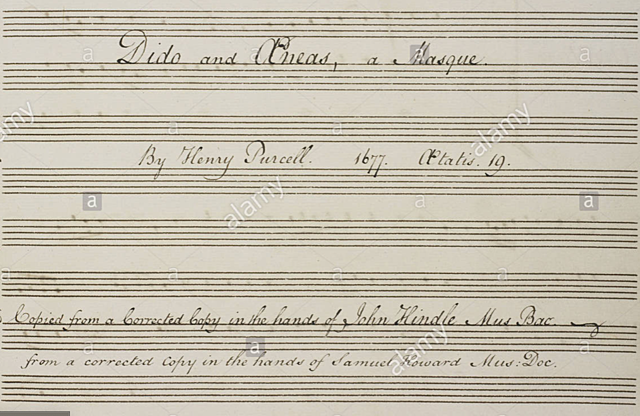 Dido and Æneas, a Masque.
By Henry Purcell. 1677. Ætatis. 19.
Copied from a Corrected Copy in the hands of John Hindle Mus Bac.
from a corrected Copy in the hands of Samuel Howard Mus: Doc.